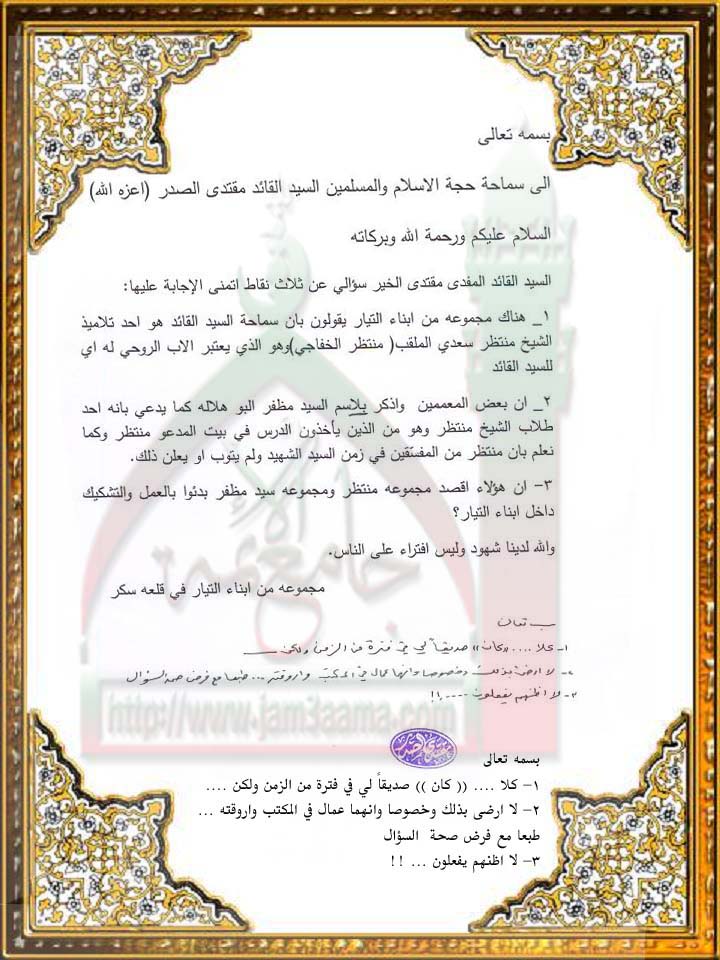 بسمه تعالى
الى سماحة حجة الاسلام والمسلمين السيد القائد مقتدى الصدر (اعزه الله)
السلام عليكم ورحمة الله وبركاته
السيد القائد المفدى مقتدى الخير سؤالي عن ثلاث نقاط اتمنى الإجابة عليها:
١_ هناك مجموعه من ابناء التيار يقولون بان سماحة السيد القائد هو احد تلاميذ
الشيخ منتظر سعدي الملقب( منتظر الخفاجي)وهو الذي يعتبر الاب الروحي له اي
للسيد القائد
٢_ ان بعض المعممين واذكر بلاسم السيد مظفر البو هلاله كما يدعي بانه احد
طلاب الشيخ منتظر وهو من الذين يأخذون الدرس في بيت المدعو منتظر وكما
نعلم بان منتظر من المفسّقين في زمن السيد الشهيد ولم يتوب او يعلن ذلك.
٣- ان هؤلاء اقصد مجموعه منتظر ومجموعه سيد مظفر بدئوا بالعمل والتشكيك
داخل ابناء التيار؟
والله لدينا شهود وليس افتراء على الناس.
مجموعه من ابناء التيار في قلعه سكر
ب تعالى
١- كلا .... «كان» صديقاً لي في فترة من الزمن ولكن ...
٢- لا ارضى بذلك وخصوصا وانهما عمال في المكتب واروقته ... طبعا مع فرض صحة السؤال
٣- لا اظنهم يفعلون ..... !!
جامع الأئمة
http://www.jam3aama.com
بسمه تعالى
١- كلا .... (( كان )) صديقاً لي في فترة من الزمن ولكن ....
٢- لا ارضى بذلك وخصوصا وانهما عمال في المكتب واروقته ...
طبعا مع فرض صحة السؤال
٣- لا اظنهم يفعلون ... !!